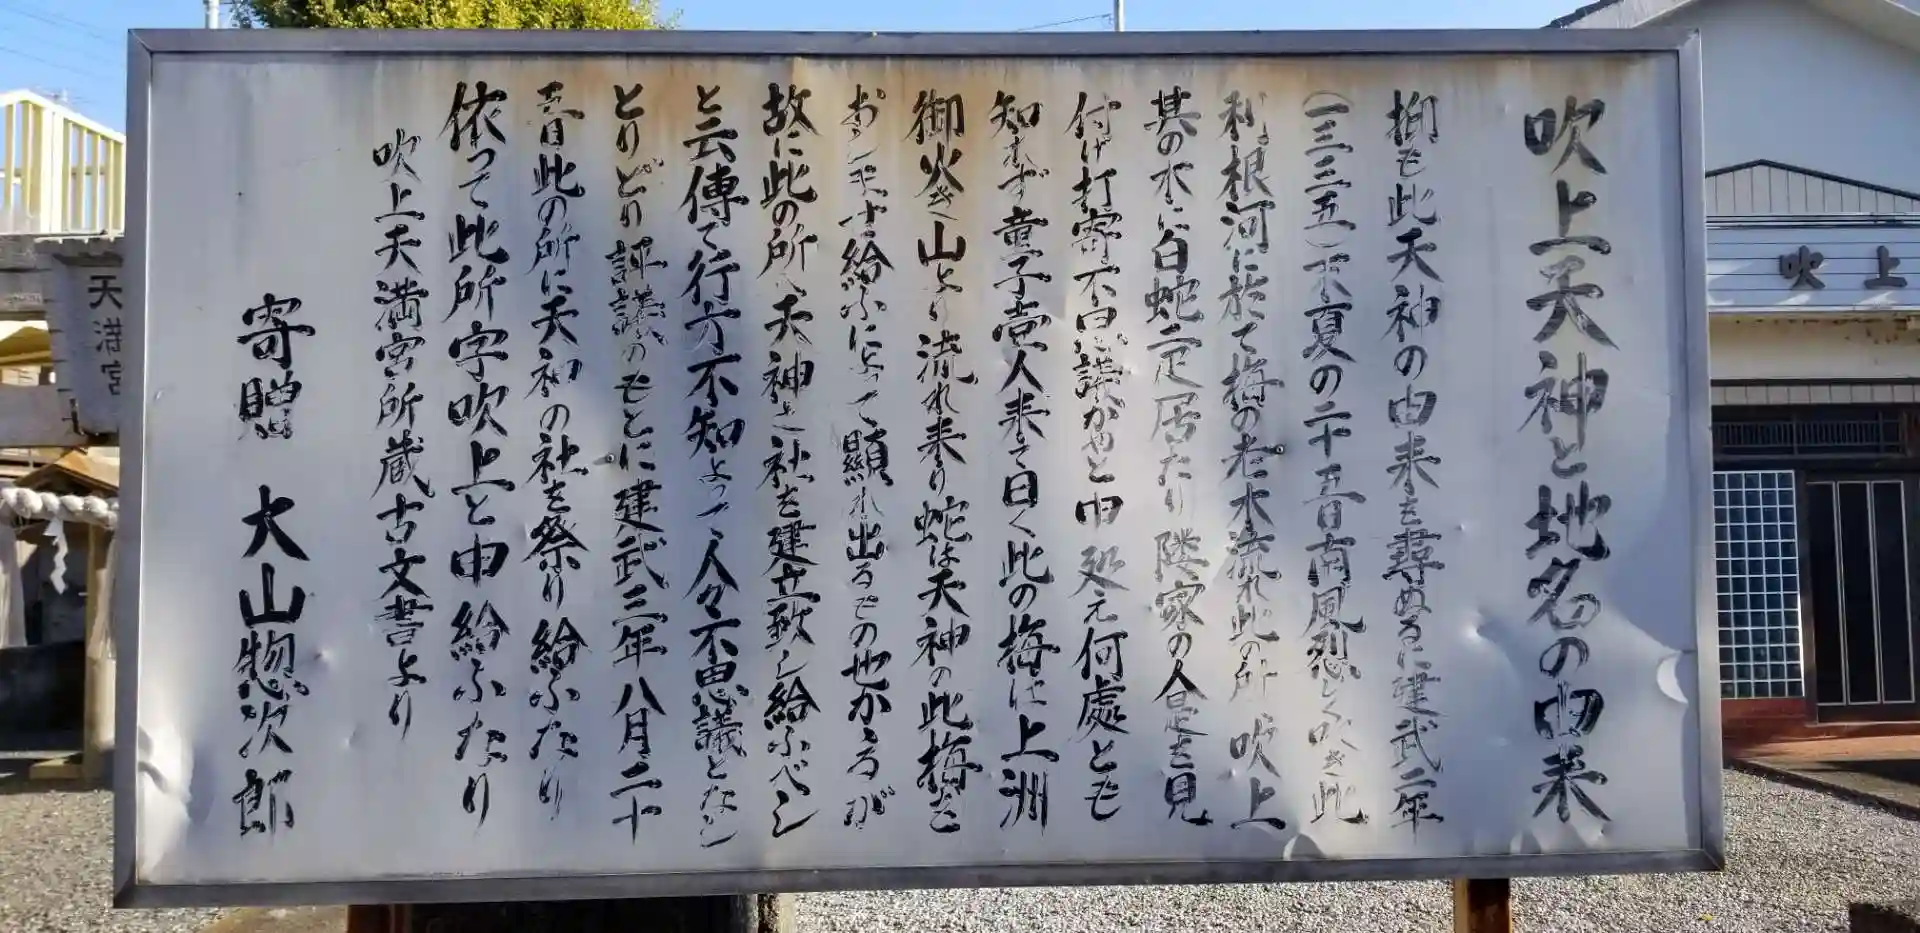 吹上天神と地名の由来
抑も此天神の由来を尋ぬるに建武二年
(一三三五)末夏の二十五日南風烈しく吹き此
利根河に於て梅の老木流れ此の所 吹上
其の木に白蛇二疋居たり隣家の人是を見
付け打寄不思議がやと申処え何處とも
知れず童子壹人来て曰く此の梅は上洲
御火き山より流れ来り蛇は天神の此梅を
おしえ給ふによって顯れ出るもの也かるが
故に此の所へ天神と社を建立致し給ふべし
と云傳て行方不知よって人々不思議となし
とりどり評議のもとに建武三年八月二十
五日此の所に天神の社を祭り給ふたり
依って此所字吹上と申給ふたり
吹上天満宮所蔵古文書より
寄贈 大山惣次郎
天満宮
吹上